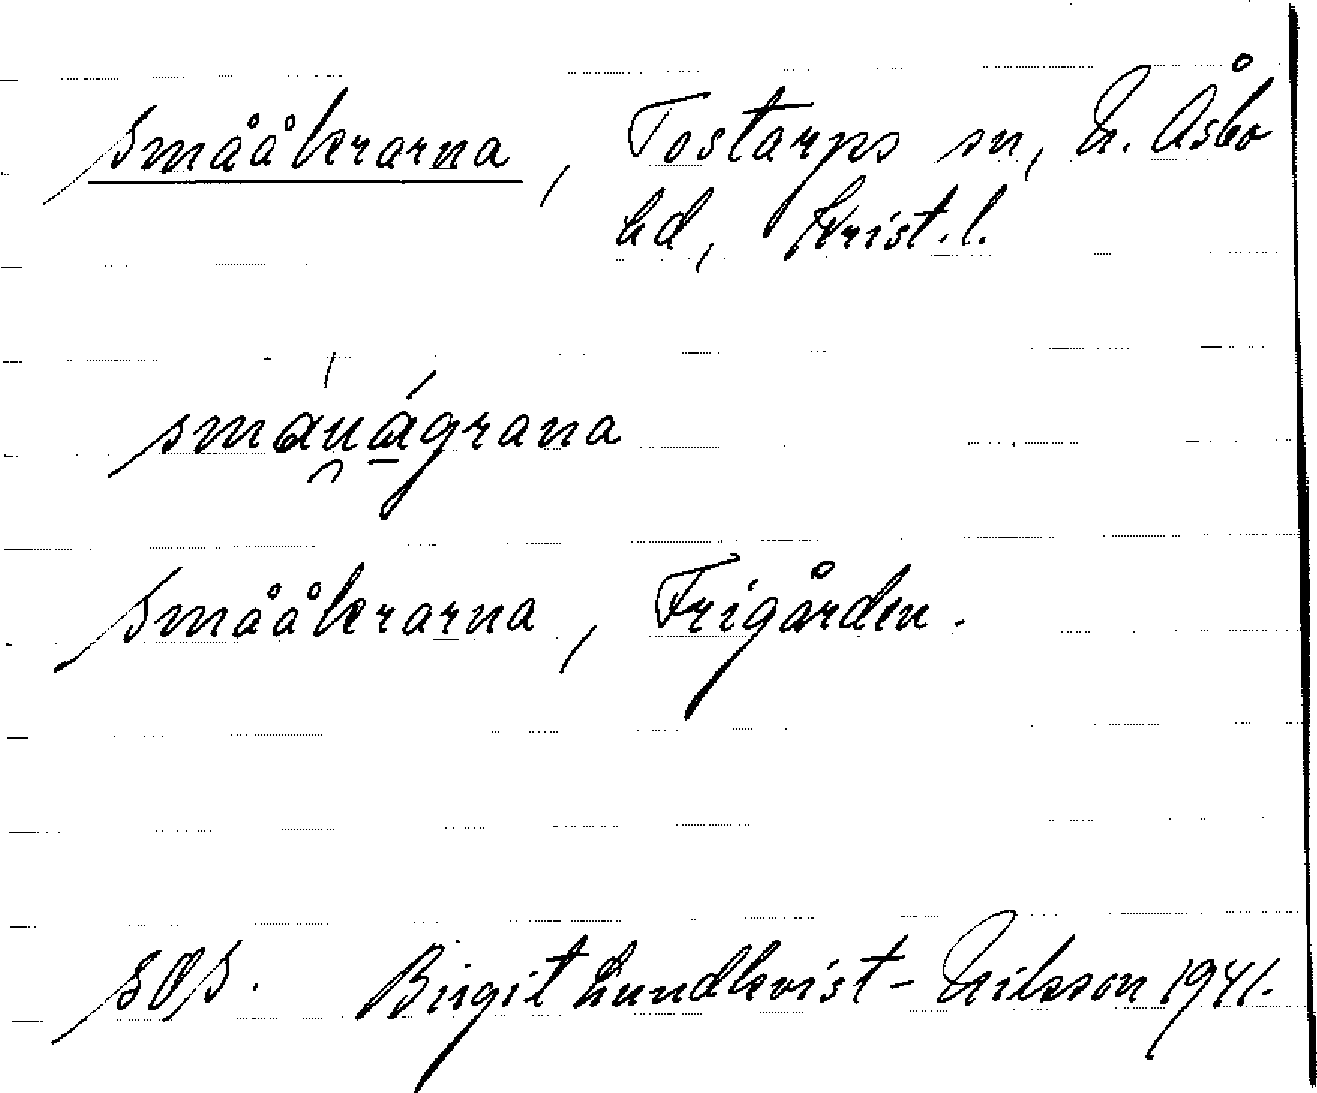 Småålkrarna, Tostarps sn, N. Åsbo
hd, Krist.l.
småu̯ågrana
Småålkrarna, Frigården.
sos. Birgit Lundkvist-Nilsson 1941.